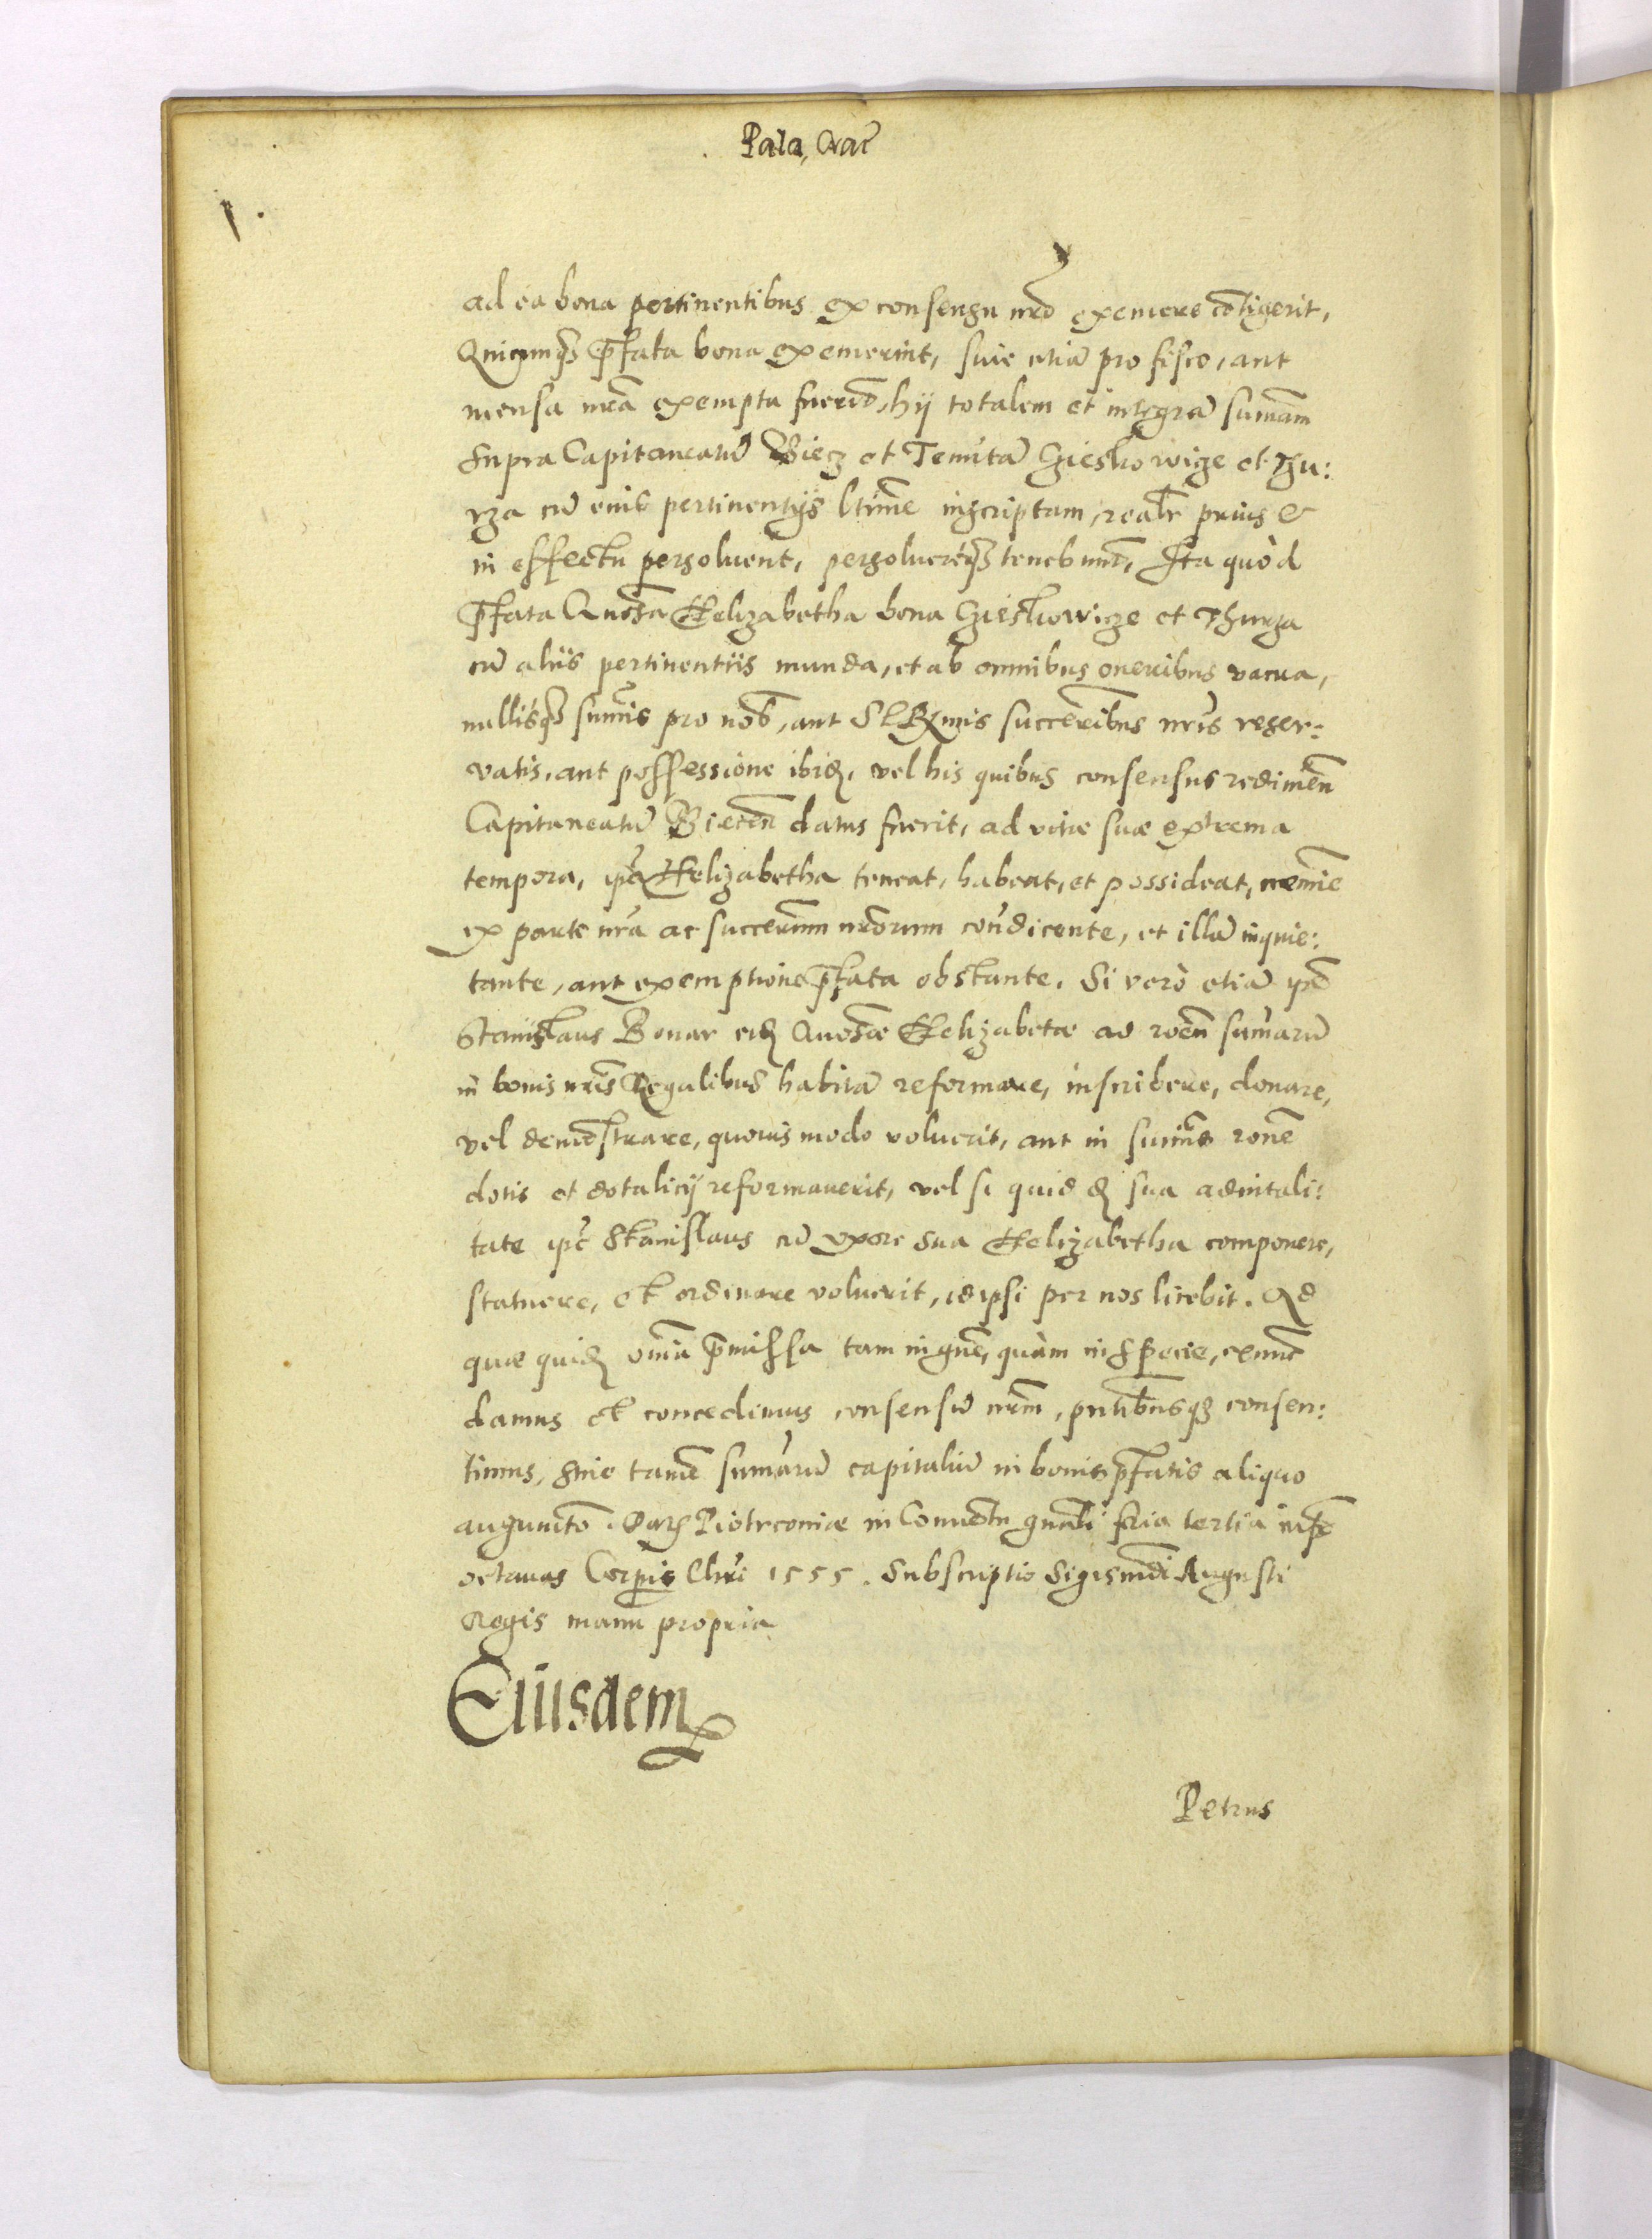 Pala, Crac̃
ad ea bona pertinentibus ex consensu nr̃o exemere cõtigerit,
Quicunq₃ p̃fata bona exemerint, siue etiã pro fisco, aut
mensa nr̃a exempta fuerĩt, hij totalem et integrã sum̃am
supra Capitaneatũ Biecz et Tenutã Gieskowicze et Thu:
rza cũ em̃ib pertinentijs l̃time inscriptam, realr̃ prius &
in effectu persoluent, persoluereq₃ tenebunt̃, Ita quòd
p̃fata Gnosa Helizabetha bona Gieskowicze et Thurza
cũ aliis pertinentiis munda, et ab omnibus oneribus vacua,
nullisq₃ sum̃is pro nob̃, aut Sereñmis succeribus nr̃is reser:
vatis, aut possessione ibid̃, vel his quibus consensus redimen̄
Capitaneatũ Biecen̄ datus fuerit, ad vitæ suæ extrema
tempora, ip̃a Helizabetha teneat, habeat, et possideat, nemĩe
ex parte nr̃a ac succerum nr̃orum cõdicente, et illã inquie:
tante, aut exemptione p̃fata obstante. Si verò etiã ip̃e
Stanislaus Bonar eid̃ Gnosæ Helizabetæ ad rõem̄ sum̃arũ
in bonis nr̃is Regalibus habitã reformare, inscribere, donare,
vel demõstrare, quouis modo voluerit, aut in sum̃is rõne
dotis et dotalicij reformauerit, vel si quid d̃ sua aduitali:
tate ip̃e Stanislaus cũ vxore sua Helizabetha componere,
statuere, et ordinare voluerit, id ipsi per nos licebit. Ad
quæ quid̃ om̃ia p̃missa tam in gñe, quàm in specie, exnũc
damus et concedimus consensũ nr̃m, pñtibusq₃ consen:
timus, sine tamẽ sum̃arũ capitaliũ in bonis p̃fatis aliquo
augumẽto. Dat̃ Piotrconiæ in Conuẽtu gñali feria tertia infr̃a
octauas Corp̃is Chr̃i 1555. Subscriptio Sigismũdi Augusti
Regis manu propria
Eiusdem
Petrus